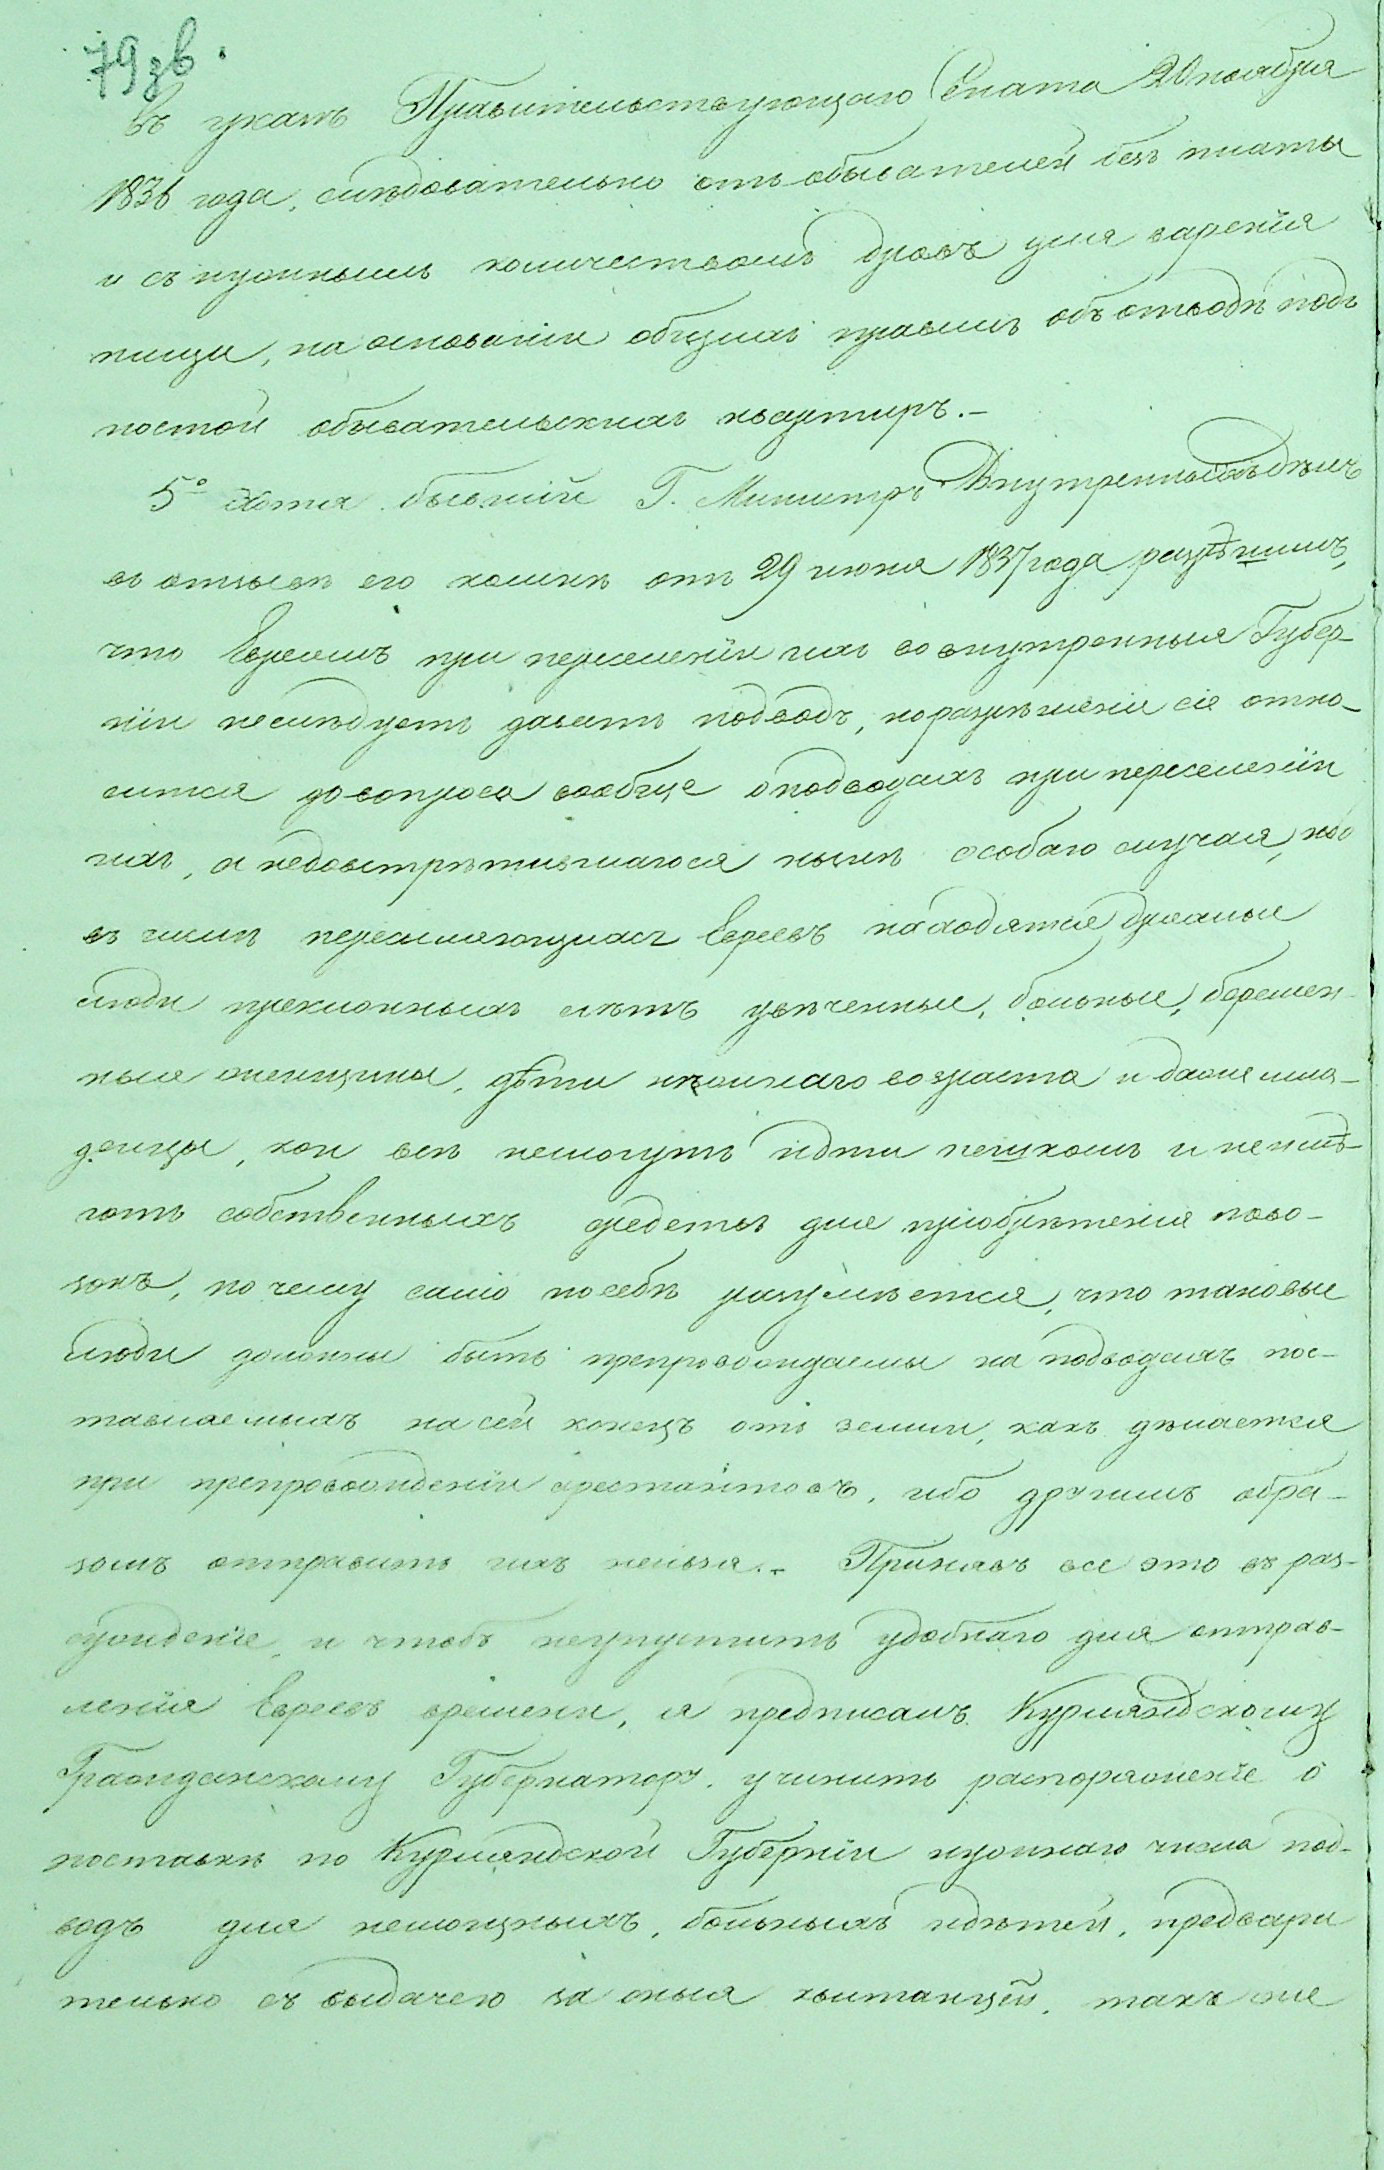 79 зв.
въ указѣ Правительствующаго Сената 20 ноября
1836 года, слѣдовательно отъ обывателей безъ платы
и съ нужнымъ количествомъ дровъ для варенія
пищи, на основаніи общихъ правилъ объ отводѣ подъ
постой обывательскихъ квартиръ.-
5º Хотя бывшій Г. Министръ Внутреннихъ дѣлъ
въ отзывѣ его комнѣ отъ 29 июня 1837 года разрѣшилъ,
что Евреямъ при переселеніи ихъ во внутреннія Губер-
ніи неслѣдуетъ давать подводъ, но разрѣшеніе сіе отно-
сится до вопроса вообще о подводахъ при переселеніи
ихъ, а недовстрѣтившагося нынѣ особаго случая, ибо
въ числѣ переселяющихся Евреевъ находятся дряхлые
люди преклонныхъ лѣтъ увѣченные, больные, беремен-
ныя женщины, дѣти нѣжнаго возраста и даже мла-
денцы, кои всѣ немогутъ идти пешкомъ и неимѣ-
ютъ собственныхъ средствъ для пріобрѣтенія пово-
зокъ, по чему само посебѣ разумѣется, что таковые
люди должны быть препровождаемы на подводахъ пос-
тавляемыхъ на сей конецъ отъ земли, какъ дѣлается
при препровожденіи арестантовъ, ибо другимъ обра-
зомъ отправить ихъ нельзя.- Принявъ все это въ раз-
сужденіе, и чтобъ неупустить удобнаго для отправ-
ленія Евреевъ времени, я предписалъ Курляндскому
Гражданскому Губернатору учинить распоряженіе о
поставкѣ по Курляндской Губерніи нужнаго числа под-
водъ для немощныхъ, больныхъ идѣтей, предвари
тельно съ выдачею за оныя квитанцій, такъ же